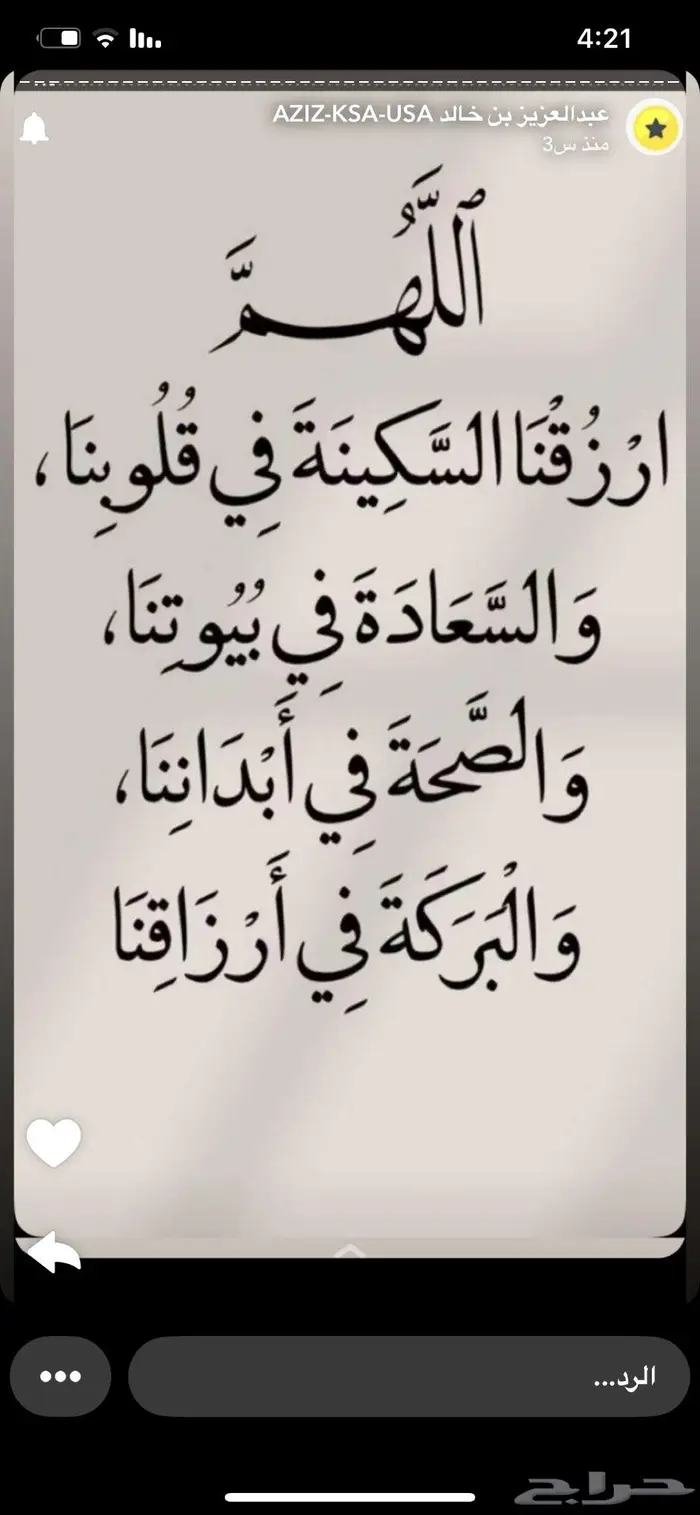 4:21
عبدالعزيز بن خالد AZIZ-KSA-USA
منذ س3
اللَّهُمَّ
ارْزُقْنَا السَّكِينَةَ فِي قُلُوبِنَا،
وَالسَّعَادَةَ فِي بُيُوتِنَا،
وَالصَّحَةَ فِي أَبْدَانِنَا،
وَالْبَرَكَةَ فِي أَرْزَاقِنَا
الرد...
حراج